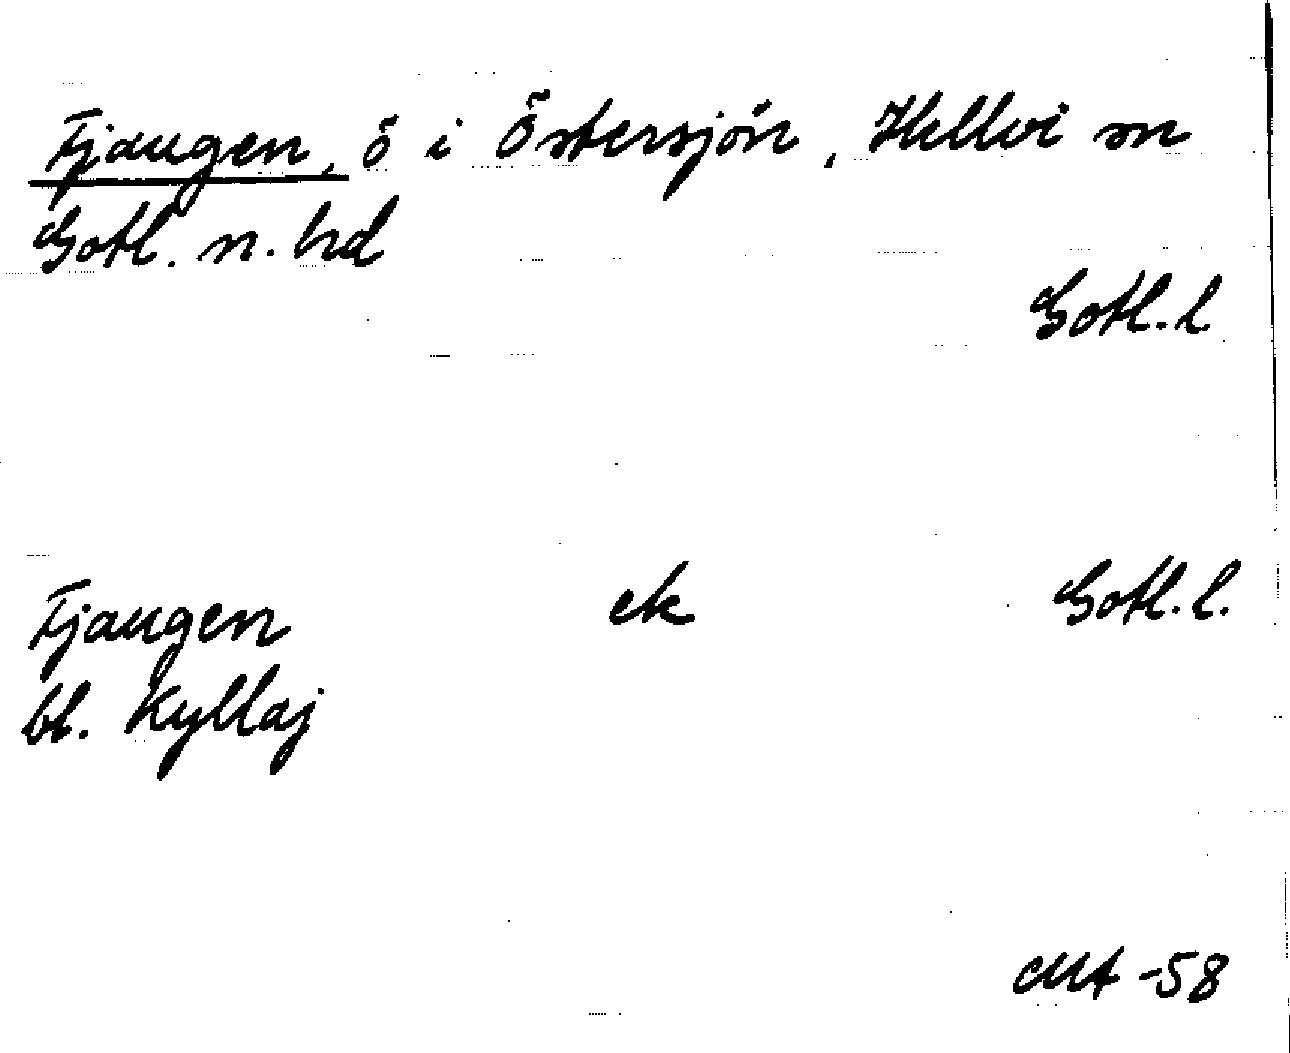 Fjaugen, ö i Östersjön, Hellvi sn
Gotl. n. hd
Gotl. l
Fjaugen ek Gotl. l.
bl. Kyllaj
MA -58